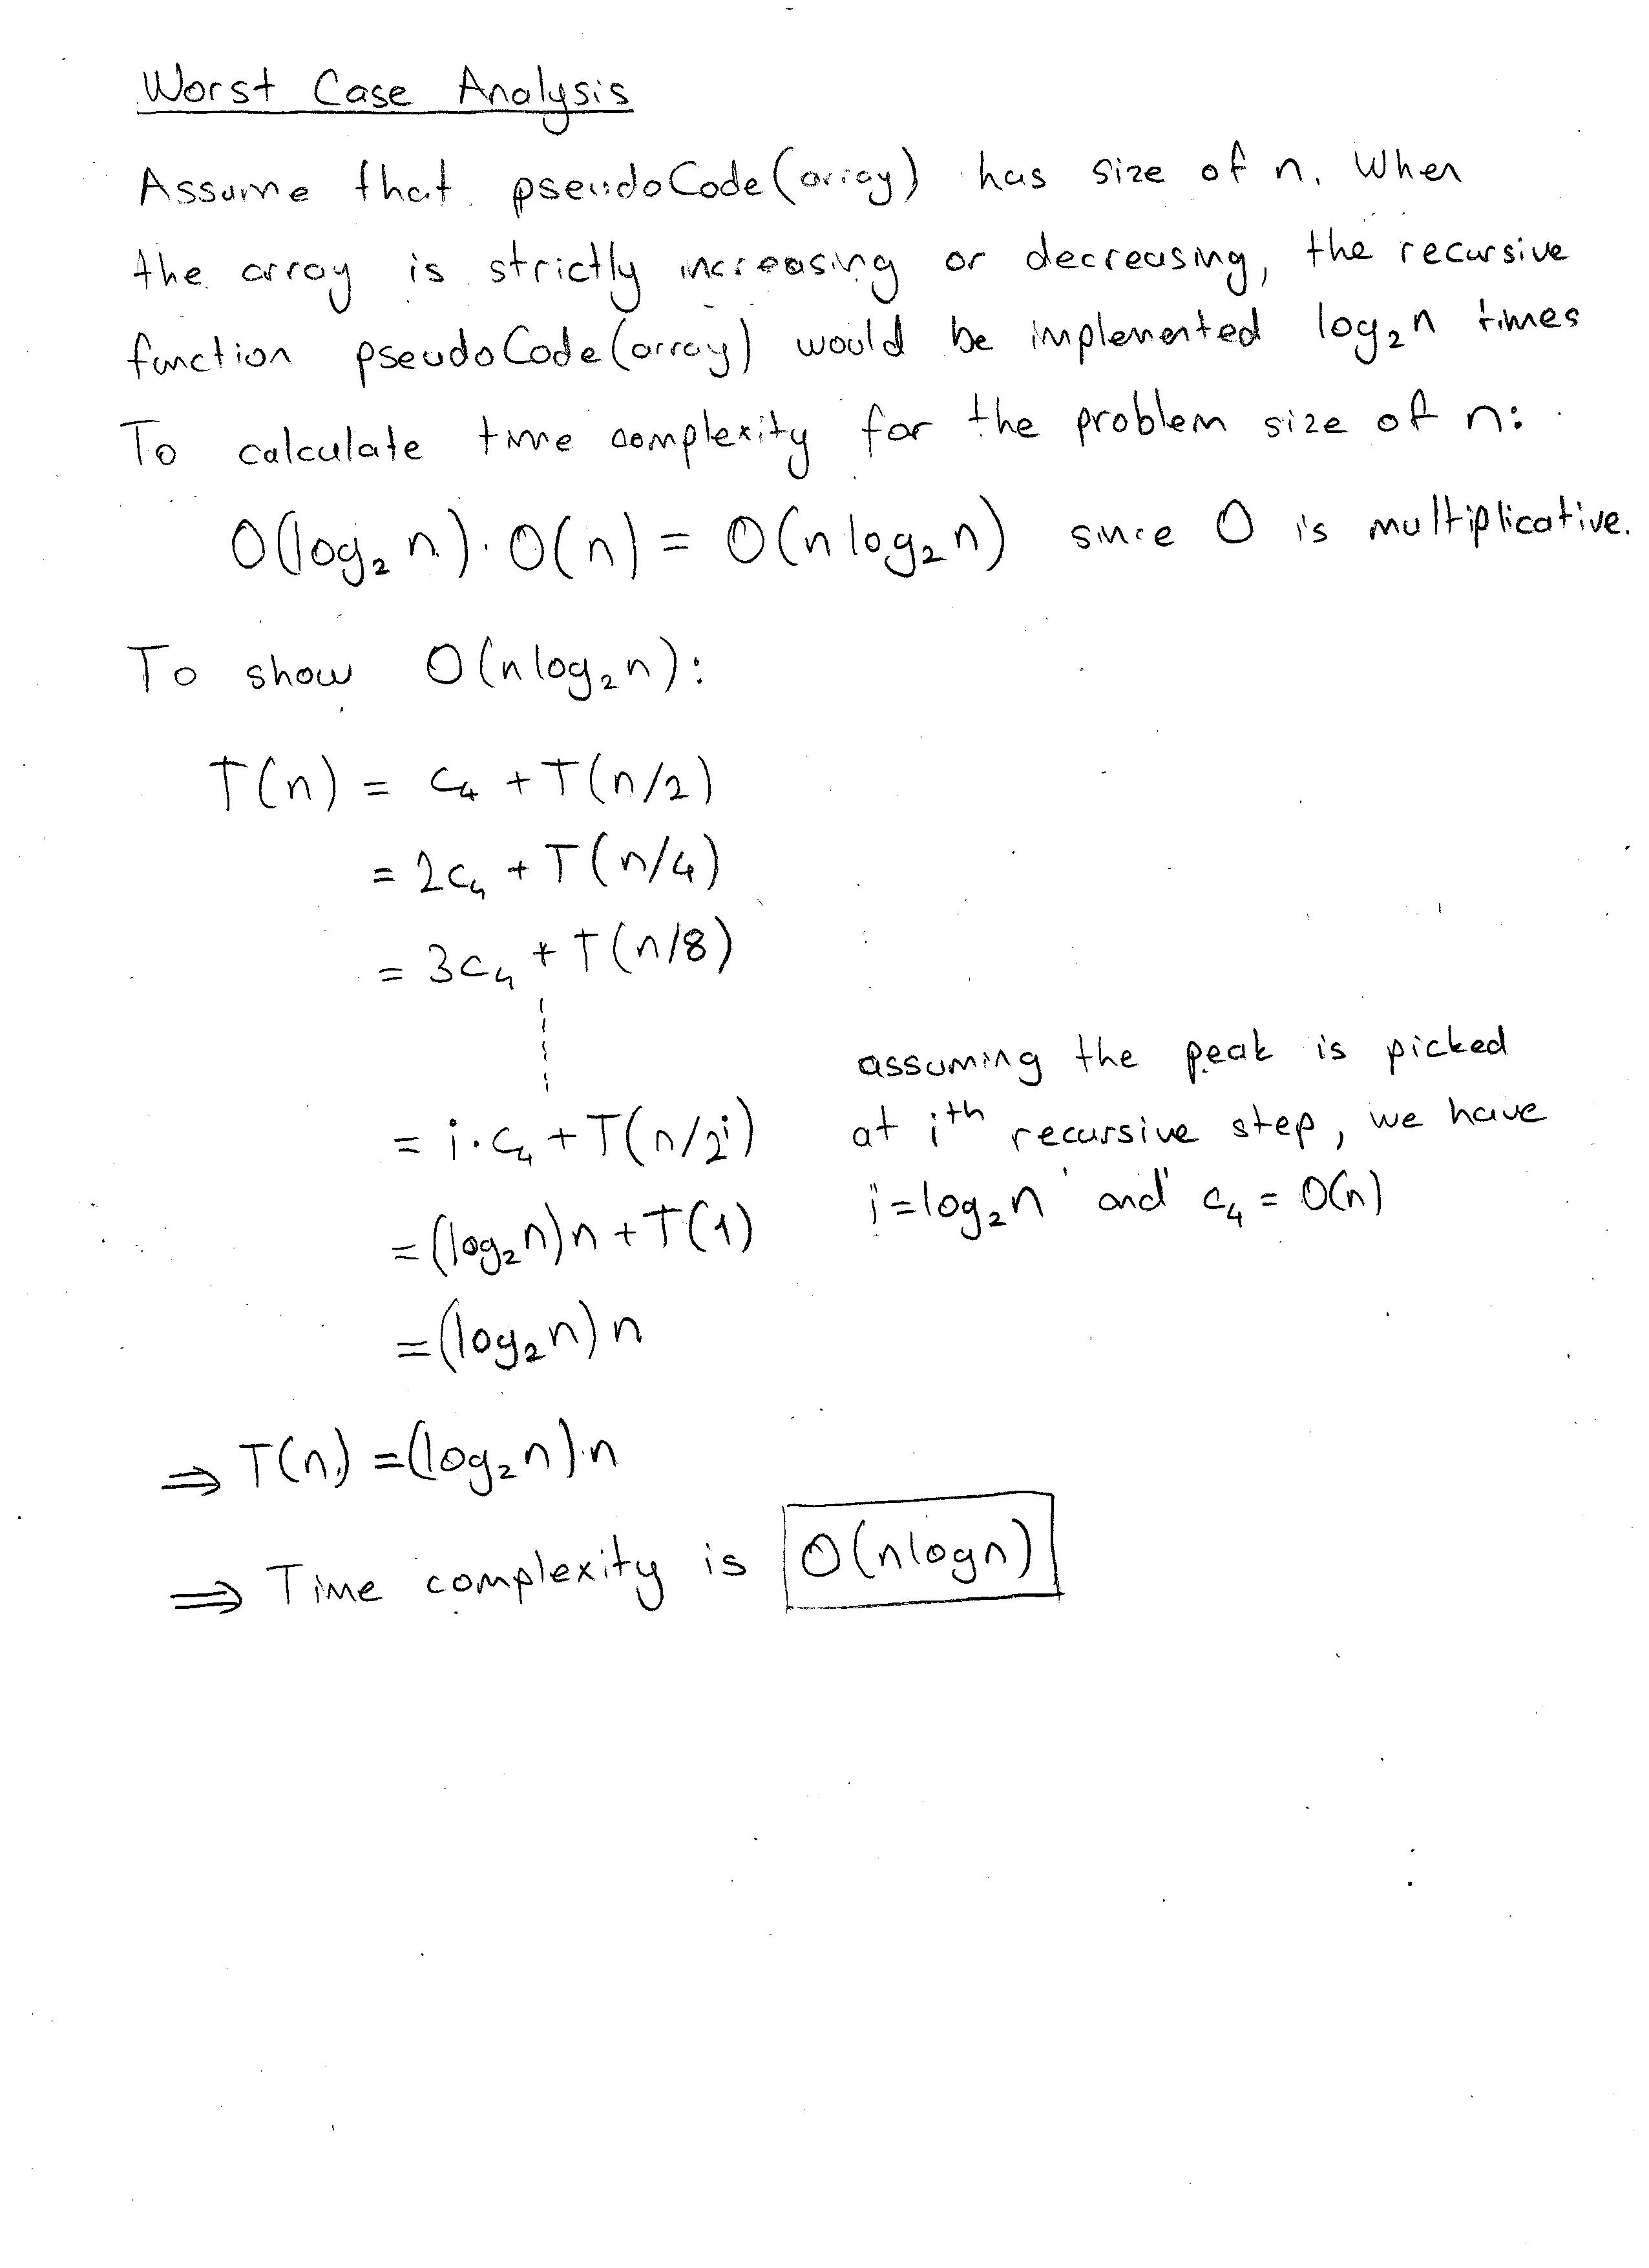 Worst Case Analysis
Assume that pseudoCode(array) has size of n. When
the array is strictly increasing or decreasing, the recursive
function pseudoCode(array) would be implemented log₂n times
To calculate time complexity for the problem size of n:
O(log₂ n) · O(n) = O(n log₂n) since O is multiplicative.
To show O(n log₂n):
T(n) = c₄ + T(n/2)
= 2c₄ + T(n/4)
= 3c₄ + T(n/8)
assuming the peak is picked
= i·c₄ + T(n/2ⁱ) at iᵗʰ recursive step, we have
= (log₂n)n + T(1) i = log₂n and c₄ = O(n)
= (log₂n)n
⇒ T(n) = (log₂n)·n
⇒ Time complexity is O(nlogn)